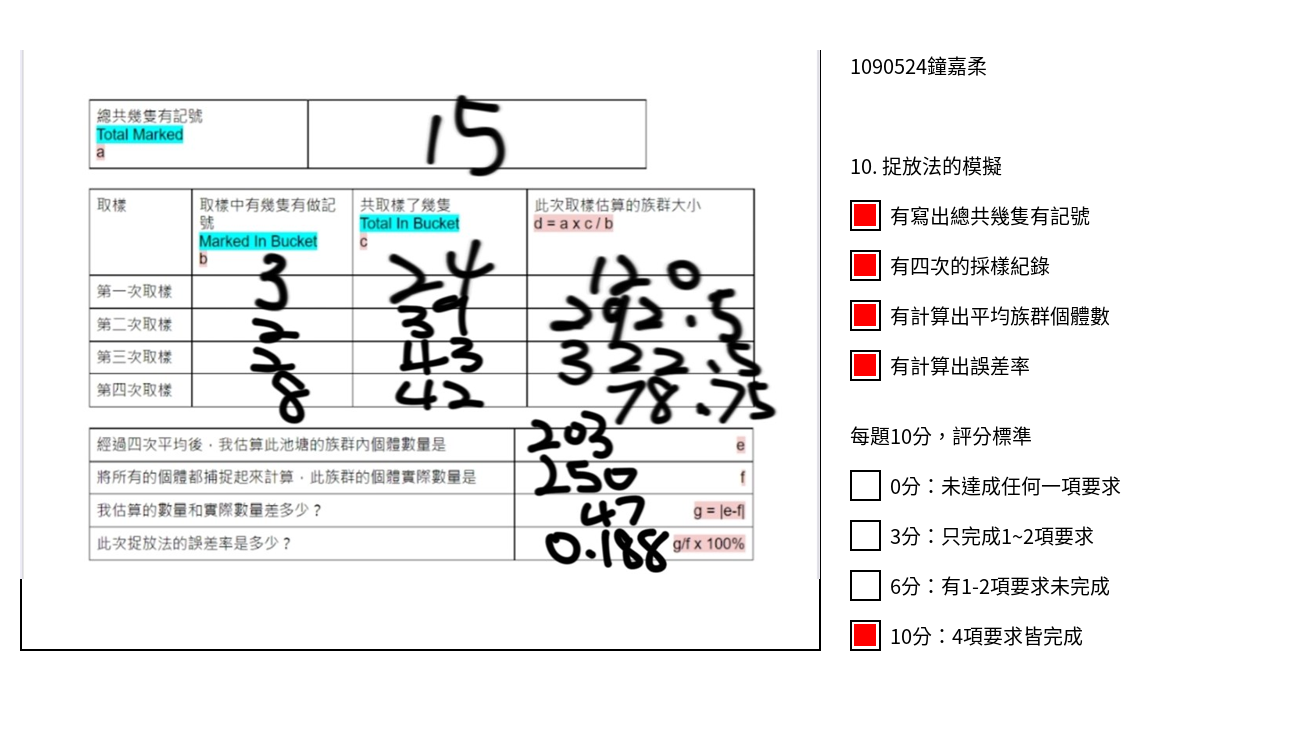 總共幾隻有記號
Total Marked
a
15
取樣
取樣中有幾隻有做記號
Marked In Bucket
b
共取樣了幾隻
Total In Bucket
c
此次取樣估算的族群大小
d = a x c / b
第一次取樣 3 24 120
第二次取樣 2 39 292.5
第三次取樣 2 43 322.5
第四次取樣 8 42 78.75
經過四次平均後，我估算此池塘的族群內個體數量是 203 e
將所有的個體都捕捉起來計算，此族群的個體實際數量是 250 f
我估算的數量和實際數量差多少？ 47 g = |e-f|
此次捉放法的誤差率是多少？ 0.188 g/f x 100%
1090524鐘嘉柔
10. 捉放法的模擬
有寫出總共幾隻有記號
有四次的採樣紀錄
有計算出平均族群個體數
有計算出誤差率
每題10分，評分標準
0分：未達成任何一項要求
3分：只完成1~2項要求
6分：有1-2項要求未完成
10分：4項要求皆完成